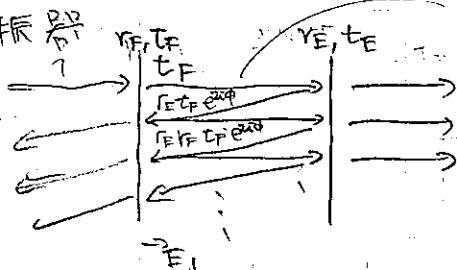 振器
r_F, t_F
r_E, t_E
t_F
r_E t_F e^{2iφ}
r_E r_F t_F e^{2iφ}
E,